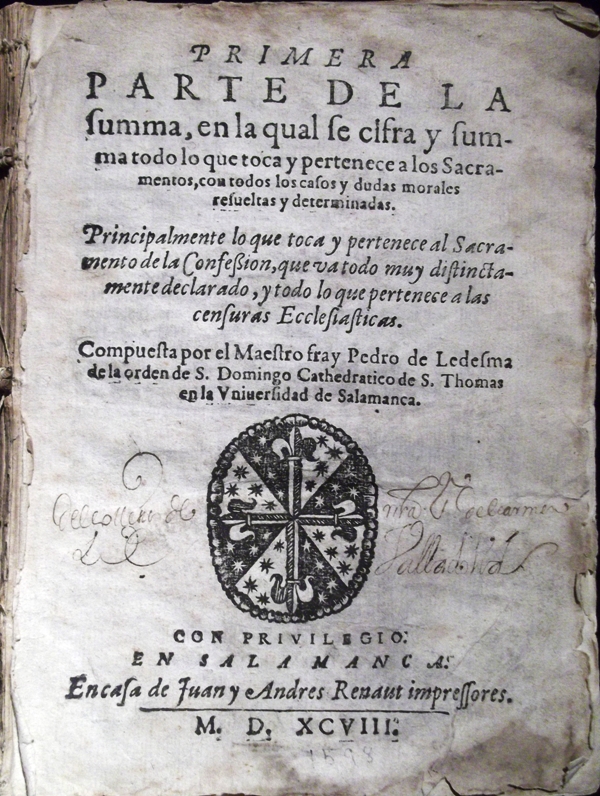 PRIMERA
PARTE DE LA
ſumma, en la qual ſe cifra y ſum-
ma todo lo que toca y pertenece a los Sacra-
mentos, con todos los caſos y dudas morales
reſueltas y determinadas.
Principalmente lo que toca y pertenece al Sacra-
mento de la Confeßion, que va todo muy diſtincta-
mente declarado, y todo lo que pertenece a las
cenſuras Eccleſiaſticas.
Compueſta por el Maeſtro fray Pedro de Ledeſma
de la orden de S. Domingo Cathedratico de S. Thomas
en la Vniuerſidad de Salamanca.
del collegio de nra. Sª del carmen
Valladolid
CON PRIVILEGIO.
EN SALAMANCA.
En caſa de Juan y Andres Renaut impreſſores.
M. D. XCVIII.
1598